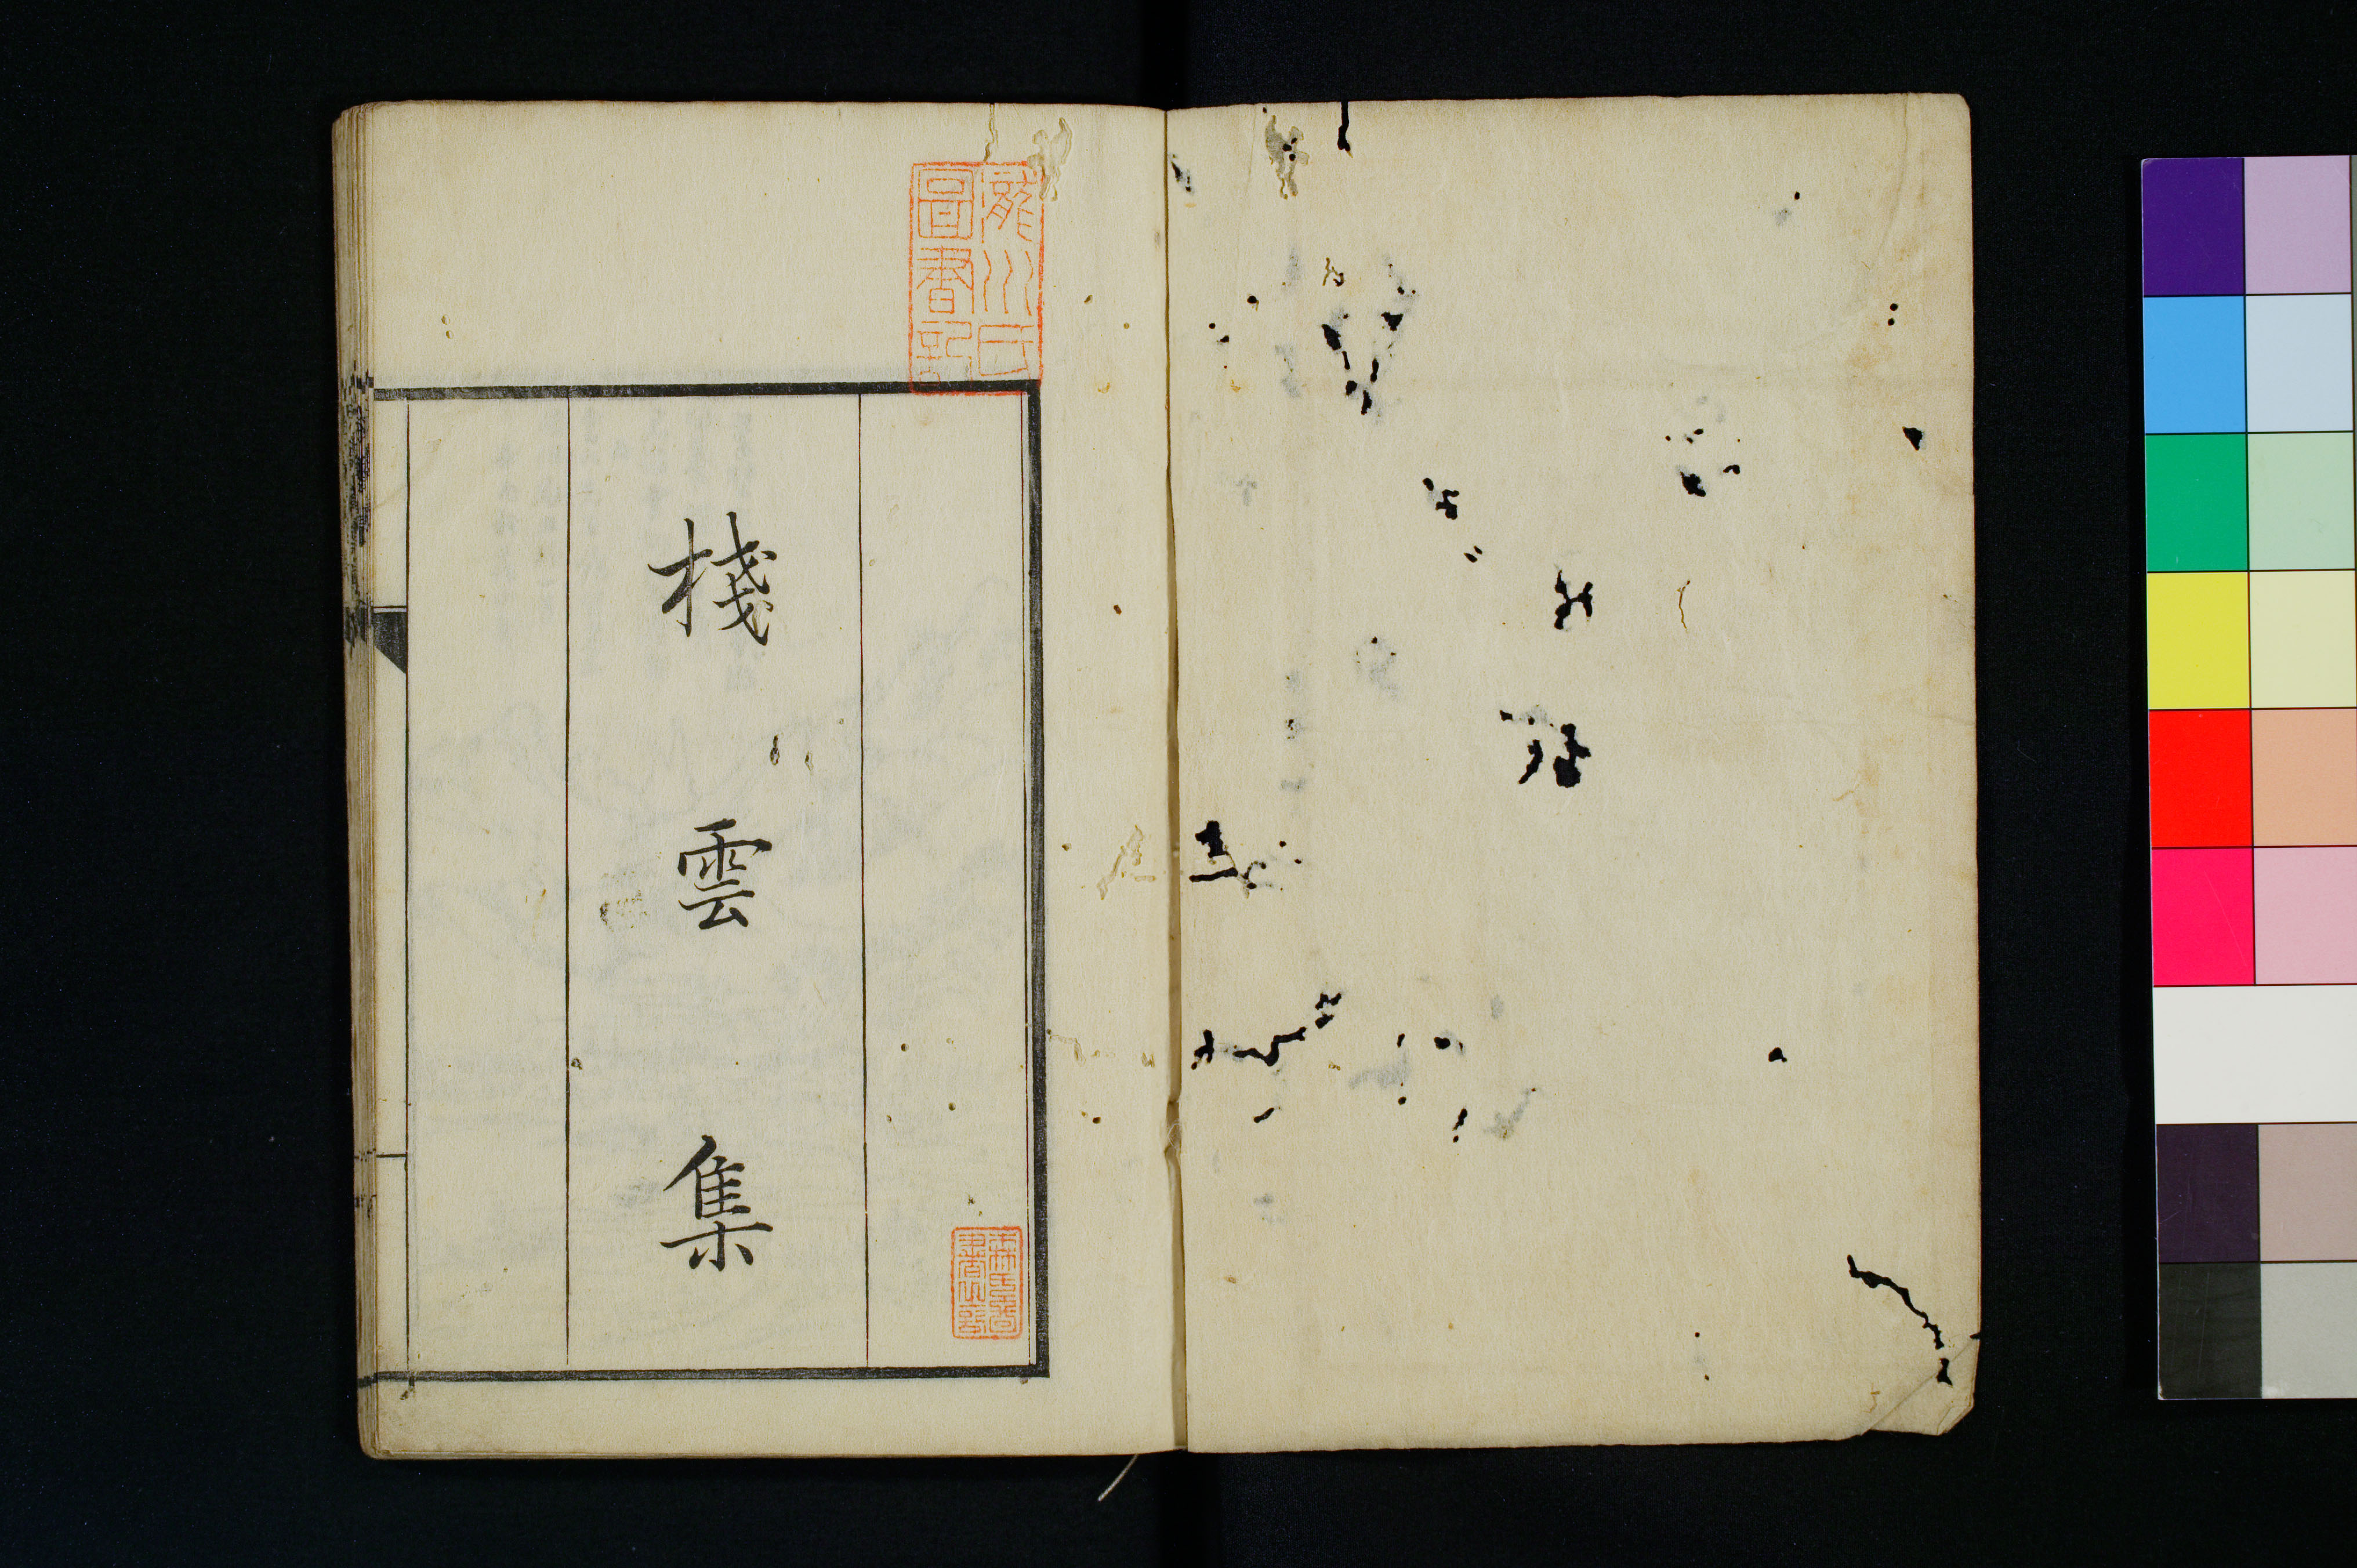 瀧川氏
圖書記
棧雲集